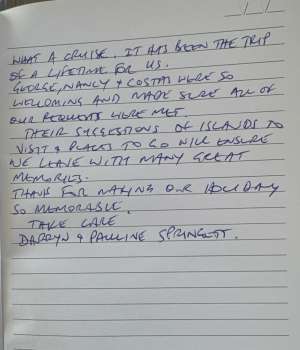 WHAT A CRUISE. IT HAS BEEN THE TRIP
OF A LIFETIME FOR US.
GEORGE, NANCY & COSTAS WERE SO
WELCOMING AND MADE SURE ALL OF
OUR REQUESTS WERE MET.
THEIR SUGGESTIONS OF ISLANDS TO
VISIT & PLACES TO GO WILL ENSURE
WE LEAVE WITH MANY GREAT
MEMORIES.
THANK FOR MAKING OUR HOLIDAY
SO MEMORABLE.
TAKE CARE
DARRYN & PAULINE SPRINGETT.